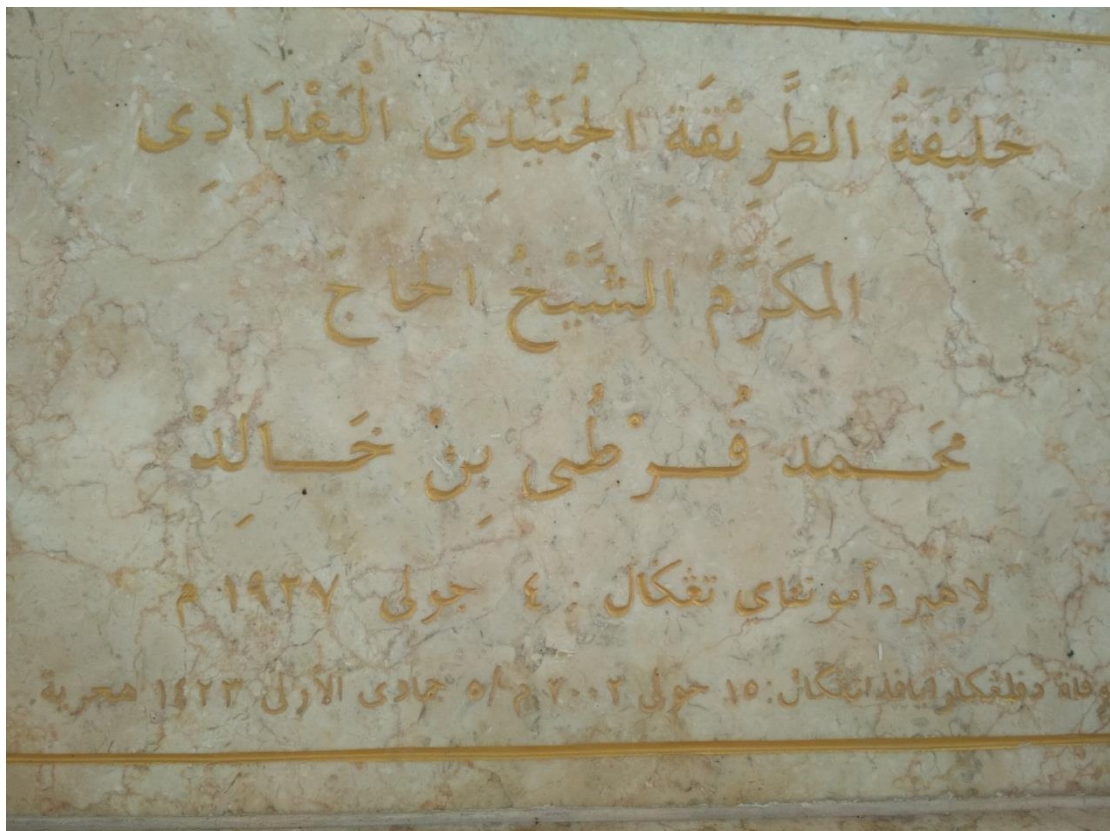 خَلِيْفَةُ الطَّرِيْقَةِ الْجُنَيْدِى الْبَغْدَادِى
المكَرَّمُ الشَّيْخُ الحاجَ
محَمد قُرْطُبى بِنْ خَالِدْ
لاهير دأمونتاي تڠكال : ٤ جولى ١٩٣٧ م
وفاة تڠكال : ١٥ جولى ٢٠٠٢ م / ٥ جمادى الأولى ١٤٢٣ هجرية